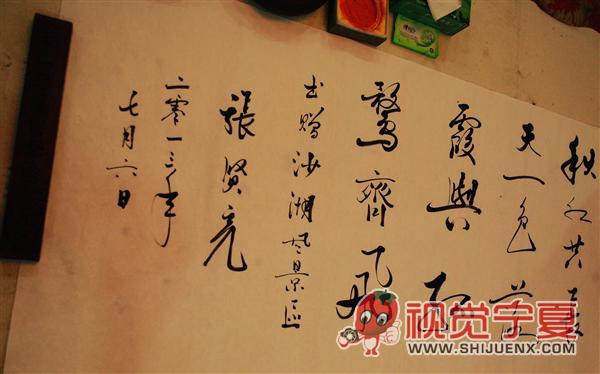 秋水共長
天一色落
霞與孤
鶩齊飛
書贈沙湖風景區
張賢亮
二零一三年
七月六日
视觉宁夏
WWW.SHIJUENX.COM